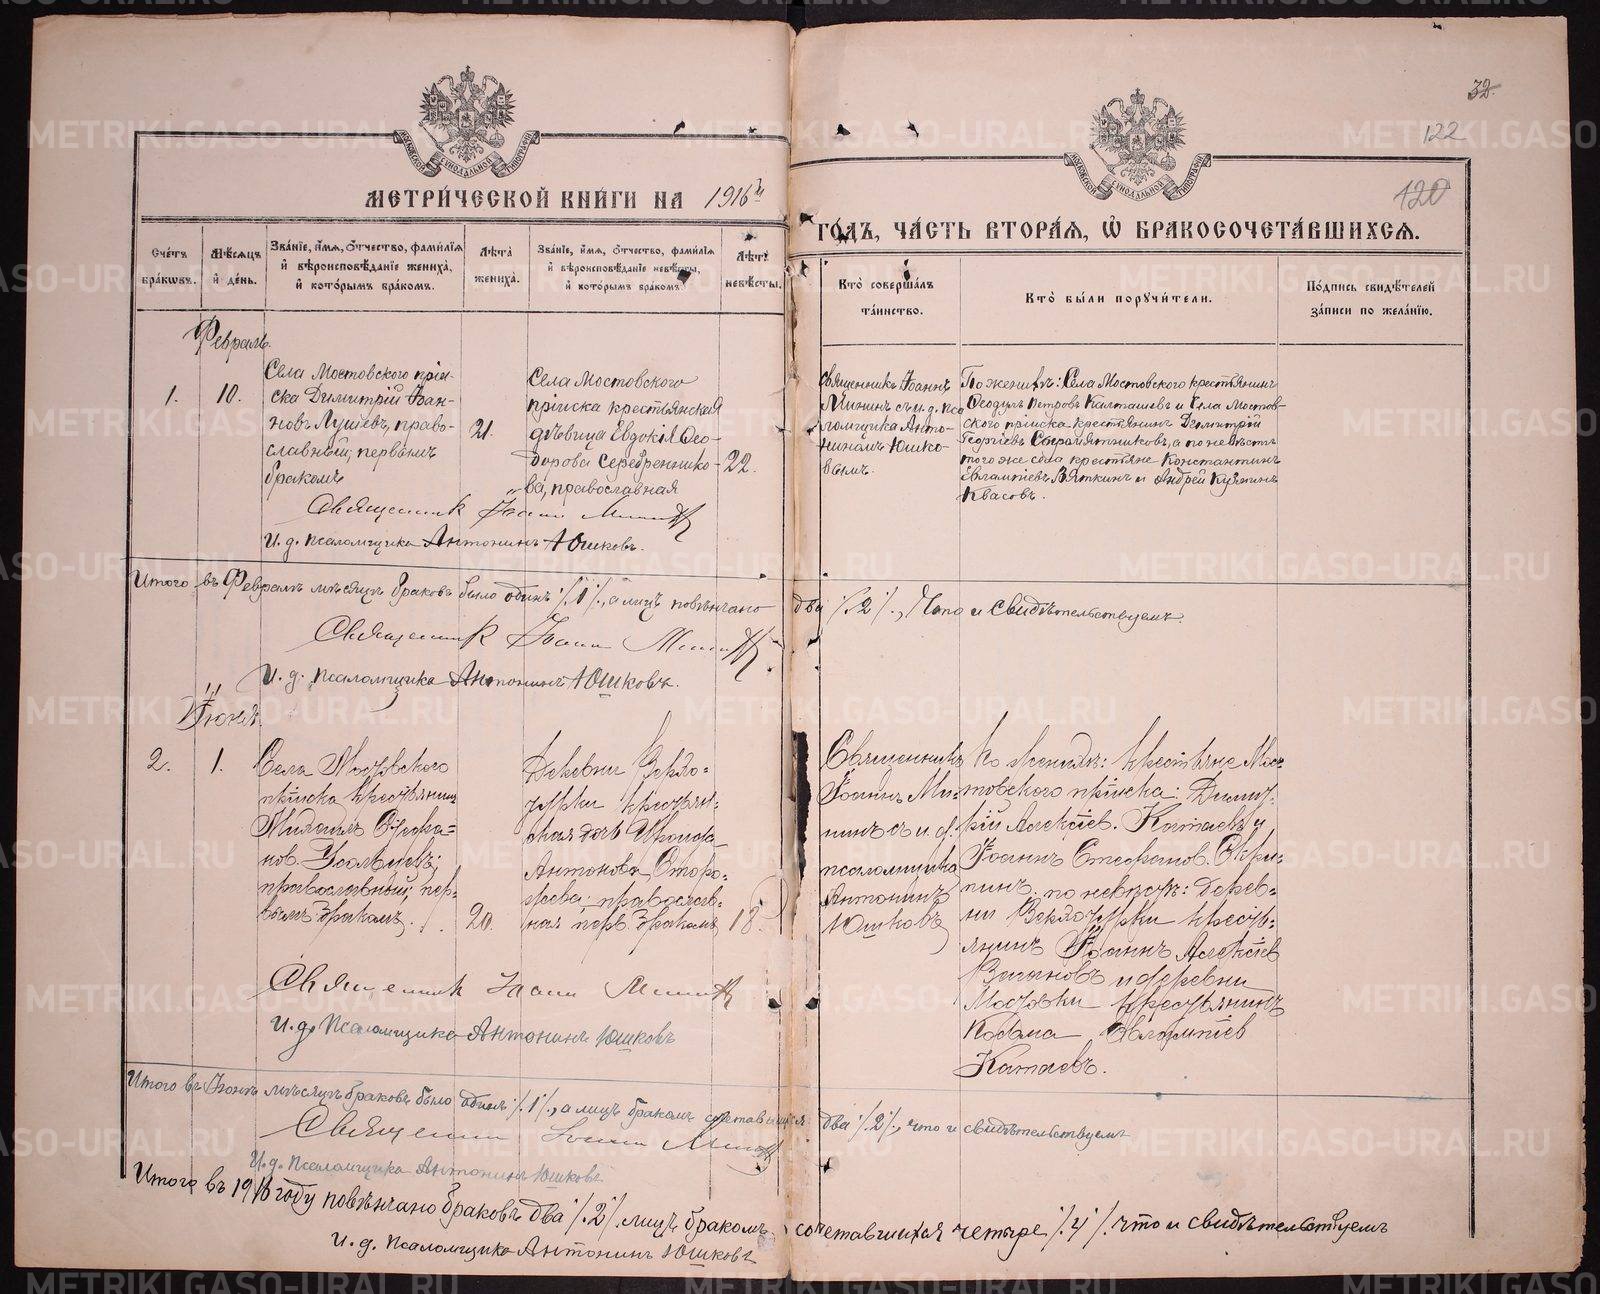 32.
122
120
МЕТРИЧЕСКОЙ КНИГИ НА 1916й
ГОДЪ, ЧАСТЬ ВТОРАЯ, Ѡ БРАКОСОЧЕТАВШИХСЯ.
МОСКОВСКОЙ СѴНОДАЛЬНОЙ ТИПОГРАФІИ
МОСКОВСКОЙ СѴНОДАЛЬНОЙ ТИПОГРАФІИ
Счетъ браковъ.
Мѣсяцъ и день.
Званіе, имя, отчество, фамилія
и вѣроисповѣданіе жениха,
и которымъ бракомъ.
Лѣта жениха.
Званіе, имя, отчество, фамилія
и вѣроисповѣданіе невѣсты,
и которымъ бракомъ.
Лѣта невѣсты.
Кто совершалъ
таинство.
Кто были поручители.
Подпись свидѣтелей
записи по желанію.
Февраль.
1.
10.
Села Мостовского прія-
ска Димитрій Іоан-
новъ Лушевъ, право-
славный, первымъ
бракомъ
21.
Села Мостовского
пріиска крестьянская
дѣвица Евдокія Ѳео-
дорова Серебреннико-
ва, православная
22.
Священникъ Іоаннъ
Мининъ съ и. д. пса
ломщика Анто-
ниномъ Юшко-
вымъ.
По женихѣ: Села Мостовского крестьянинъ
Ѳеодулъ Петровъ Калташевъ и Села Мостов-
ского пріиска крестьянинъ Димитрій
Георгіевъ Сыромятниковъ, а по невѣстѣ
того же села крестьяне Константинъ
Евлампіевъ Вяткинъ и Андрей Кузминъ
Квасовъ.
Священник Іоанн Минин
И. д. псаломщика Антонинъ Юшковъ.
Итого въ Февралѣ мѣсяцѣ браковъ было одинъ /.1/., а лицъ повѣнчано
два /.2/., Что и свидѣтельствуемъ.
Священник Іоанн Минин
И. д. псаломщика Антонинъ Юшковъ.
Іюнь.
2.
1.
Села Мостовского
пріиска крестьянинъ
Михаилъ Стефа=
нов.
православный; пер-
вымъ бракомъ.
20.
Деревни Верхо=
турки крестьян-
ская дочь
Антонова Сторо-
жева; православ-
ная перв. бракомъ
18.
Священникъ
Іоаннъ Ми-
нинъ съ и. д.
псаломщика
Антонинъ
Юшковъ
По женихѣ: крестьяне Мос-
товского пріиска: Димит-
рій Алексіев. Катаевъ и
Іоаннъ Стефанов.
по невѣстѣ: Дерев-
ни Верхотурки кресть-
янинъ Іоаннъ Алексіев
и деревни
Мостовки крестьянинъ
Козьма Евлампіев
Катаевъ.
Священник Іоанн Минин
И. д. Псаломщика Антонинъ Юшковъ
Итого въ Іюнѣ мѣсяцѣ браковъ было одинъ /.1/., а лицъ бракомъ сочетавшихся
два /.2/., что и свидѣтельствуемъ
Священник Іоанн Минин
И. д. Псаломщика Антонинъ Юшковъ
Итого въ 1916 году повѣнчано браковъ два /.2/. лицъ бракомъ сочетавшихся четыре /.4/. что и свидѣтельствуемъ
И. д. псаломщика Антонин Юшковъ
METRIKI.GASO-URAL.RU